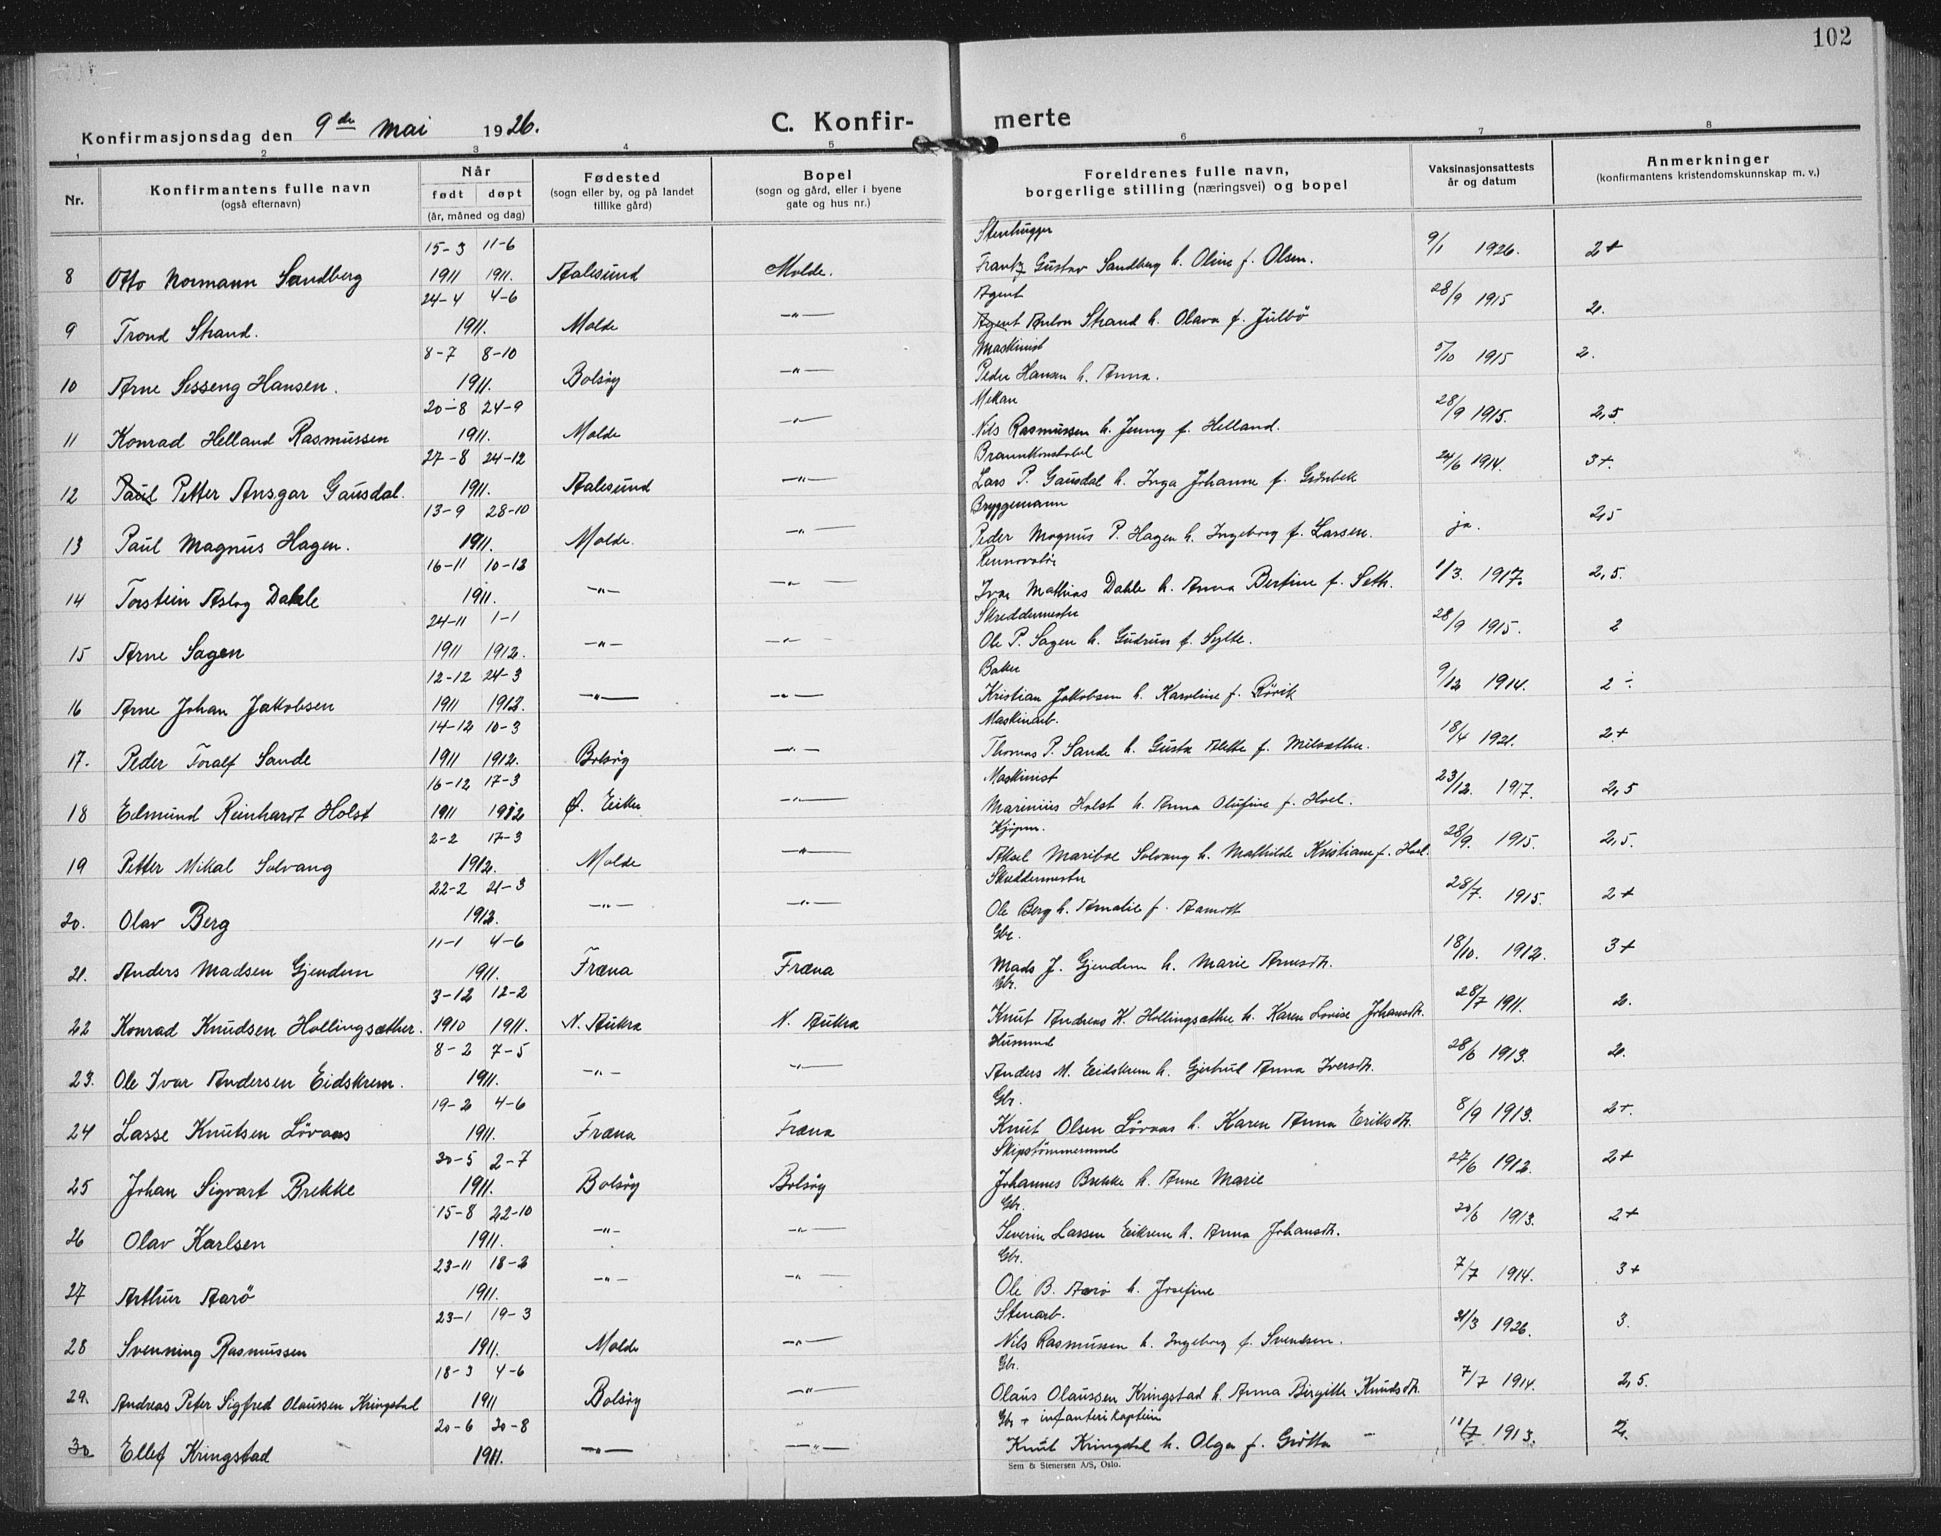 102
Konfirmasjonsdag den 9de mai 1926. C. Konfir- merte
1 2 3 4 5 6 7 8
Nr. Konfirmantens fulle navn (også efternavn) Når født døpt (år, måned og dag) Fødested (sogn eller by, og på landet tillike gård) Bopel (sogn og gård, eller i byene gate og hus nr.) Foreldrenes fulle navn, borgerlige stilling (næringsvei) og bopel Vaksinasjonsattests år og datum Anmerkninger (konfirmantens kristendomskunnskap m. v.)
15-3 11-6 Stenhugger
8 Otto Normann Sandberg 1911 1911. Aalesund Molde. Frantz Gustav Sandberg h. Oline f. Olsen. 9/1 1926. 2+
24-4 4-6 Agent
9 Trond Strand. 1911. Molde —"— Agent Anton Strand h. Olava f. Julbö 28/9 1915 2.
8-7 8-10 Maskinist
10 Arne Sesseng Hansen. 1911. Bolsøy —"— Peder Hansen h. Anna. 5/10 1915 2.
20-8 24-9 Mekan
11 Konrad Helland Rasmussen 1911. Molde —"— Nils Rasmussen h. Jenny f. Helland. 28/9 1915. 2,5
27-8 24-12 Brannkonstabel
12 Paul Petter Ansgar Gausdal. 1911. Aalesund —"— Lars P. Gausdal h. Inga Johanne f. Grönbek 24/6 1914. 3+.
13-9 28-10 Bryggemann
13 Paul Magnus Hagen. 1911. Molde. —"— Peder Magnus P. Hagen h. Ingeborg f. Larsen. ja. 2,5
16-11 10-12 Rennovatör
14 Torstein Aslag Dahle 1911. —"— —"— Ivar Mathias Dahle h. Anna Bertine f. Seth. 1/3. 1917. 2,5.
24-11 1-1 Skreddermester
15 Arne Sagen 1911 1912. —"— —"— Ole P. Sagen h. Gudrun f. Sylte. 28/9 1915. 2
12-12 24-3 Baker
16 Arne Johan Jakobsen 1911 1912. —"— —"— Kristian Jakobsen h. Karoline f. Rörvik 9/12 1914. 2÷
14-12 10-3 Maskinarb.
17. Peder Toralf Sande 1911 1912. Bolsøy —"— Thomas P. Sande h. Gusta Alette f. Milsæther. 18/4 1921. 2+
16-12 17-3 Maskinist
18 Edmund Reinhardt Holst 1911 1912 Ø. Eiker —"— Marinius Holst h. Anna Olufine f. Hoel. 23/12. 1917. 2,5
2-2 17-3 Kjöpm.
19 Petter Mikal Solvang 1912. Molde —"— Aksel Mariboe Solvang h. Mathilde Kristiane f. Hoel. 28/9. 1915. 2,5.
22-2 21-3 Skreddermester
20. Olav Berg 1912. —"— —"— Ole Berg h. Amalie f. Aamodt 28/7. 1915. 2+
11-1 4-6 Gbr.
21. Anders Madsen Gjendem 1911. Fræna Fræna Mads J. Gjendem h. Marie Arnesdtr. 18/10. 1912. 3+
3-12 12-2 Gbr.
22 Konrad Knudsen Hollingsæther. 1910 1911. N. Aukra N. Aukra Knut Andreas K. Hollingsæther h. Karen Lovise Johansdtr. 28/7 1911. 2.
8-2 7-5 Husmand
23. Ole Ivar Andersen Eidskrem. 1911. —"— —"— Anders M. Eidskrem h. Gjertrud Anna Iversdtr. 28/6 1913. 2.
19-2 4-6 Gbr.
24 Lasse Knutsen Lövaas 1911. Fræna Fræna Knut Olsen Lövaas h. Karen Anna Eriksdtr. 8/9 1913. 2+.
30-5 2-7 Skipstömmermand
25 Johan Sigvart Brekke 1911. Bolsøy Bolsøy Johannes Brekke h. Anne Marie 27/6 1912. 2+
15-8 22-10 Gbr.
26 Olav Karlsen 1911. —"— —"— Severin Larsen Eikrem h. Anna Johansdtr. 20/6 1913. 2+
23-11 18-2 Gbr.
27 Arthur Aarö 1911. —"— —"— Ole B. Aarö h. Josefine 7/7 1914. 3+
23-1 19-3 Stenarb.
28 Svenning Rasmussen 1911. Molde —"— Nils Rasmussen h. Ingeborg f. Svendsen. 31/3 1926. 3.
18-3 4-6 Gbr.
29. Andreas Peter Sigfred Olaussen Kringstad 1911 Bolsøy —"— Olaus Olaussen Kringstad h. Anna Birgitte Knudsdtr. 7/7 1914. 2,5.
20-6 20-8 Gbr + infanterikaptein
30 Ellef Kringstad 1911. —"— —"— Knut Kringstad h. Olga f. Grötta 1913. 2.
Sem & Stenersen A/S, Oslo.